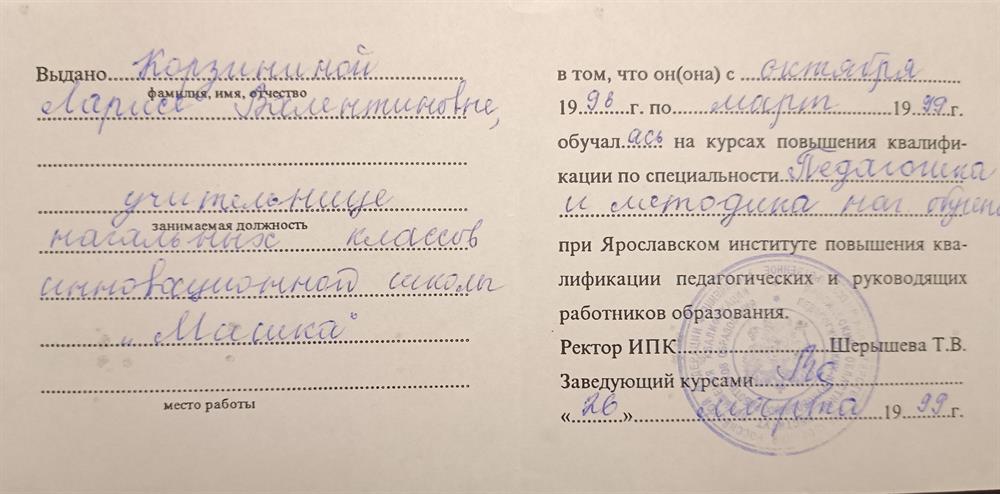 Выдано Корзининой
фамилия, имя, отчество
Ларисе Валентиновне,
учительнице
занимаемая должность
начальных классов
инновационной школы
„Машка“
место работы
в том, что он(она) с октября
1998 г. по март 1999 г.
обучалась на курсах повышения квалифи-
кации по специальности Педагогика
и методика нач обучен
при Ярославском институте повышения ква-
лификации педагогических и руководящих
работников образования.
Ректор ИПК Шерышева Т.В.
Заведующий курсами
«26» марта 1999 г.